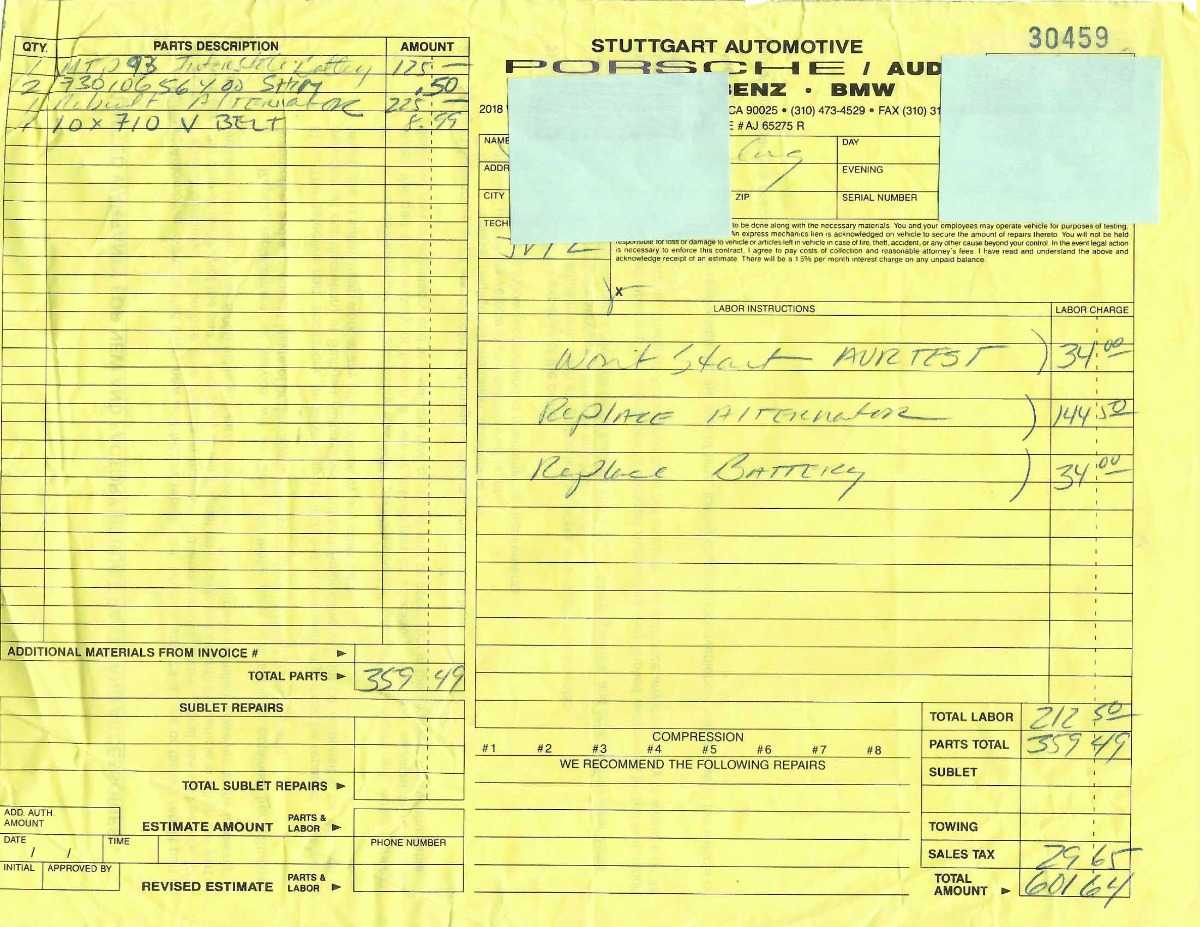 30459
STUTTGART AUTOMOTIVE
PORSCHE / AUD
BENZ • BMW
2018
CA 90025 • (310) 473-4529 • FAX (310) 31
E # AJ 65275 R
QTY. PARTS DESCRIPTION AMOUNT
1 MTP 93 Interstate Battery 125.—
2 Shim .50
1 Rebuilt Alternator 225.—
1 10 x 710 V BELT 8.99
ADDITIONAL MATERIALS FROM INVOICE #
TOTAL PARTS 359 49
SUBLET REPAIRS
TOTAL SUBLET REPAIRS
ADD. AUTH. AMOUNT
ESTIMATE AMOUNT PARTS & LABOR
DATE / / TIME
PHONE NUMBER
INITIAL APPROVED BY
REVISED ESTIMATE PARTS & LABOR
NAME DAY
ADDR EVENING
CITY ZIP SERIAL NUMBER
TECH
to be done along with the necessary materials. You and your employees may operate vehicle for purposes of testing,
An express mechanics lien is acknowledged on vehicle to secure the amount of repairs thereto. You will not be held
responsible for loss or damage to vehicle or articles left in vehicle in case of fire, theft, accident, or any other cause beyond your control. In the event legal action
is necessary to enforce this contract, I agree to pay costs of collection and reasonable attorney's fees. I have read and understand the above and
acknowledge receipt of an estimate. There will be a 1.5% per month interest charge on any unpaid balance.
X
LABOR INSTRUCTIONS LABOR CHARGE
Won't Start AVR TEST ) 34.00
Replace Alternator ) 144 50
Replace Battery ) 34.00
COMPRESSION
#1 #2 #3 #4 #5 #6 #7 #8
WE RECOMMEND THE FOLLOWING REPAIRS
TOTAL LABOR 212 50
PARTS TOTAL 359 49
SUBLET
TOWING
SALES TAX 29 65
TOTAL AMOUNT 601 64